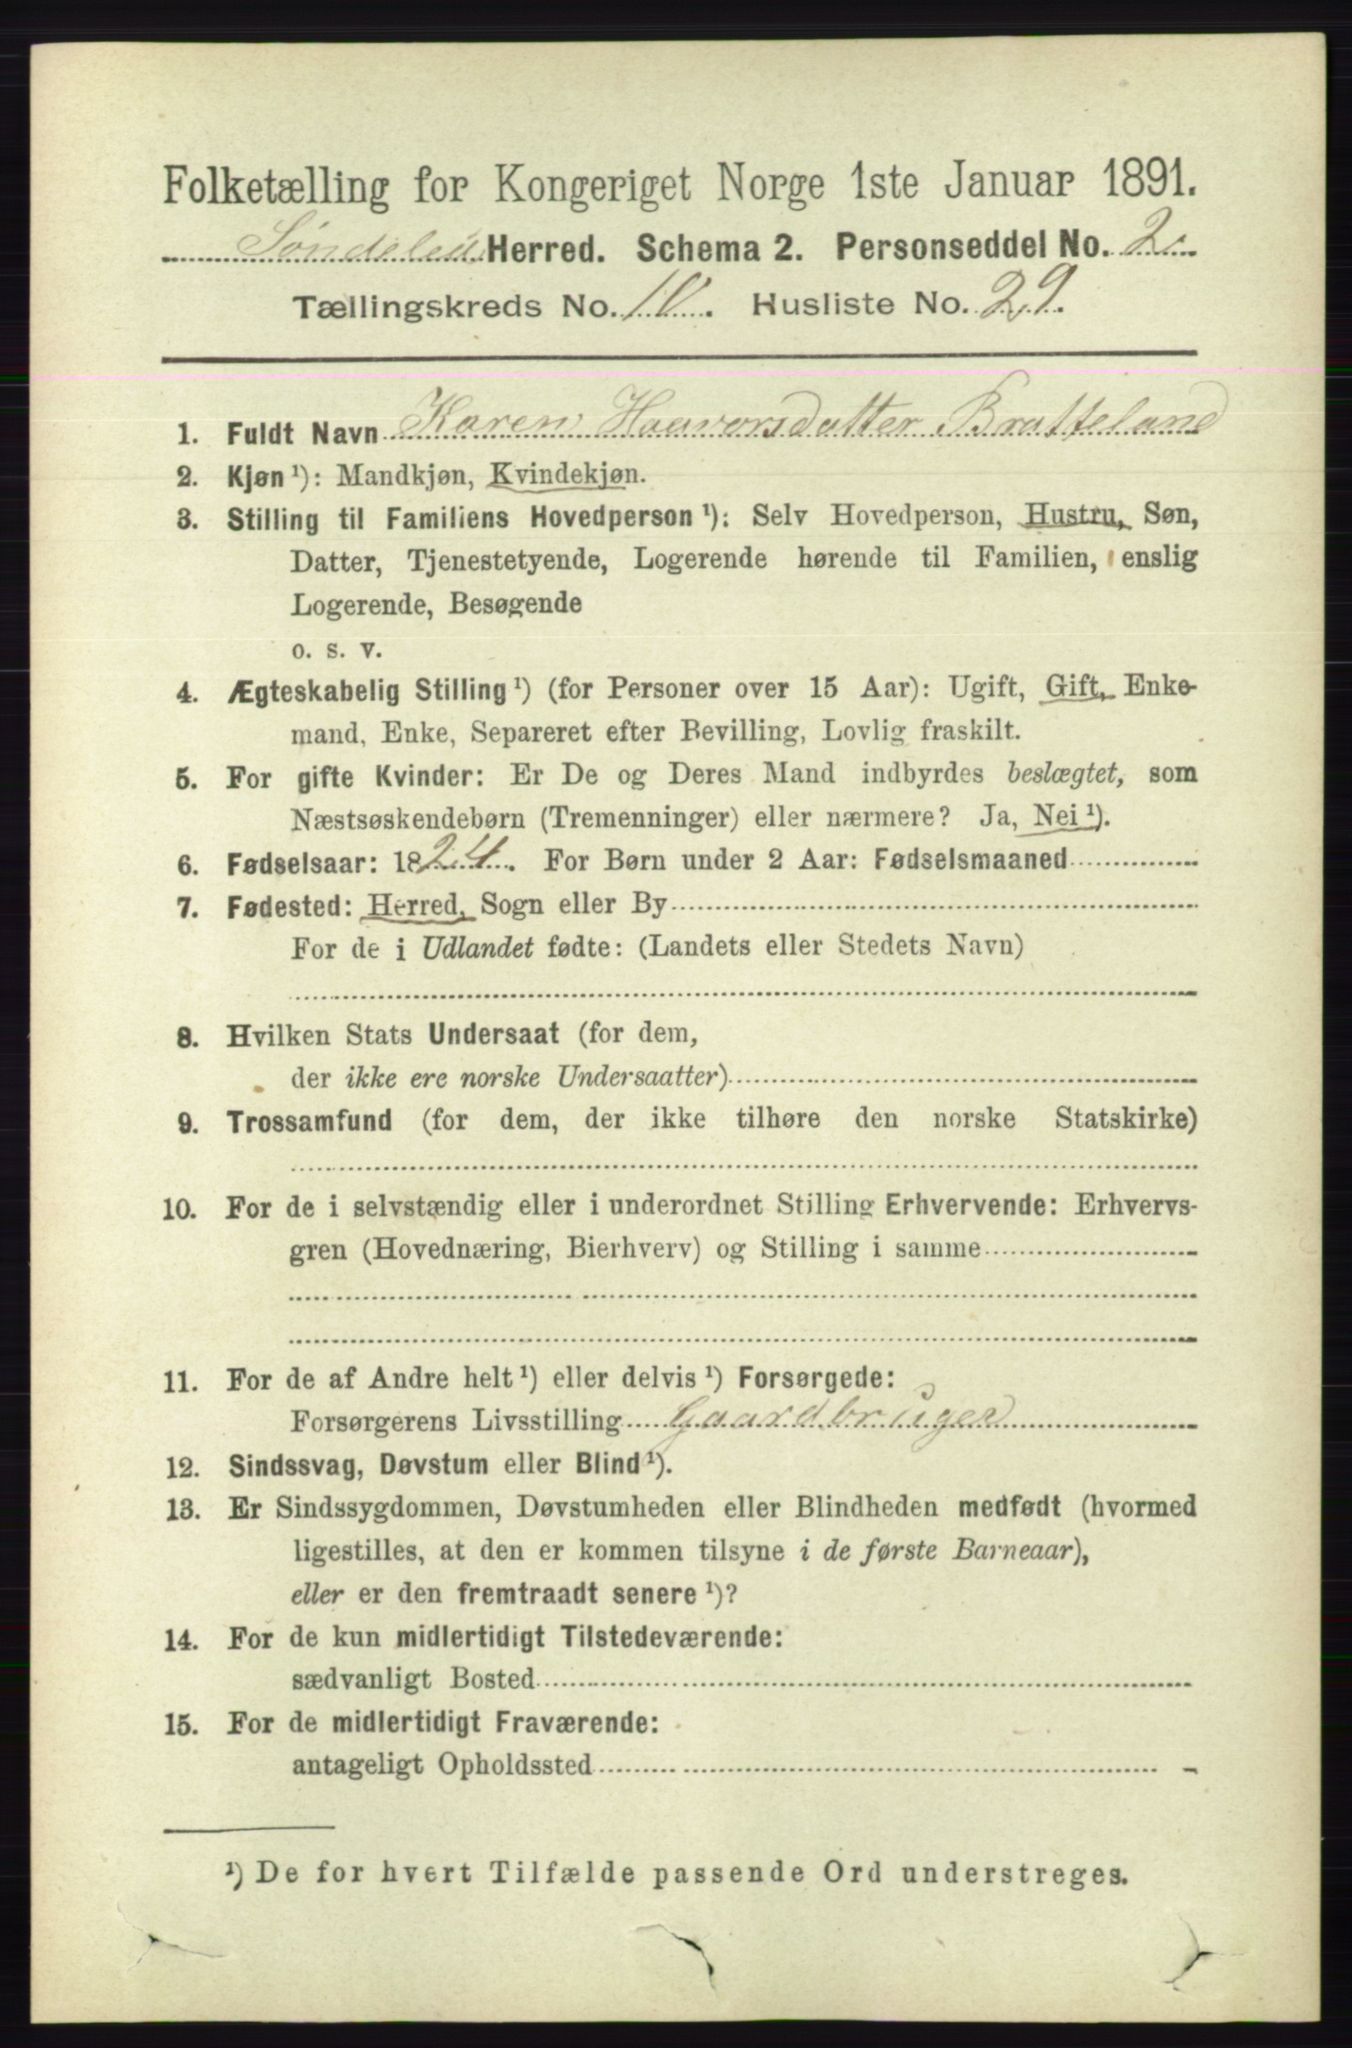 Folketælling for Kongeriget Norge 1ste Januar 1891.
Søndeled Herred. Schema 2. Personseddel No. 2.
Tællingskreds No. 10. Husliste No. 29.
1. Fuldt Navn Karen Haavorsdatter Bratteland
2. Kjøn ¹): Mandkjøn, Kvindekjøn.
3. Stilling til Familiens Hovedperson ¹): Selv Hovedperson, Hustru, Søn,
Datter, Tjenestetyende, Logerende hørende til Familien, enslig
Logerende, Besøgende
o. s. v.
4. Ægteskabelig Stilling ¹) (for Personer over 15 Aar): Ugift, Gift, Enke-
mand, Enke, Separeret efter Bevilling, Lovlig fraskilt.
5. For gifte Kvinder: Er De og Deres Mand indbyrdes beslægtet, som
Næstsøskendebørn (Tremenninger) eller nærmere? Ja, Nei ¹).
6. Fødselsaar: 1824. For Børn under 2 Aar: Fødselsmaaned
7. Fødested: Herred, Sogn eller By
For de i Udlandet fødte: (Landets eller Stedets Navn)
8. Hvilken Stats Undersaat (for dem,
der ikke ere norske Undersaatter)
9. Trossamfund (for dem, der ikke tilhøre den norske Statskirke)
10. For de i selvstændig eller i underordnet Stilling Erhvervende: Erhvervs-
gren (Hovednæring, Bierhverv) og Stilling i samme
11. For de af Andre helt ¹) eller delvis ¹) Forsørgede:
Forsørgerens Livsstilling Gaardbruger
12. Sindssvag, Døvstum eller Blind ¹).
13. Er Sindssygdommen, Døvstumheden eller Blindheden medfødt (hvormed
ligestilles, at den er kommen tilsyne i de første Barneaar),
eller er den fremtraadt senere ¹)?
14. For de kun midlertidigt Tilstedeværende:
sædvanligt Bosted
15. For de midlertidigt Fraværende:
antageligt Opholdssted
¹) De for hvert Tilfælde passende Ord understreges.